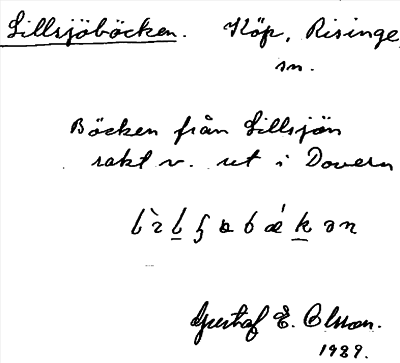 Lillsjöböcken. Köp, Risinge
sn.
Böcken från Lillsjön
rakt v. ut i Dovern
Gustaf E. Olsson.
1929.